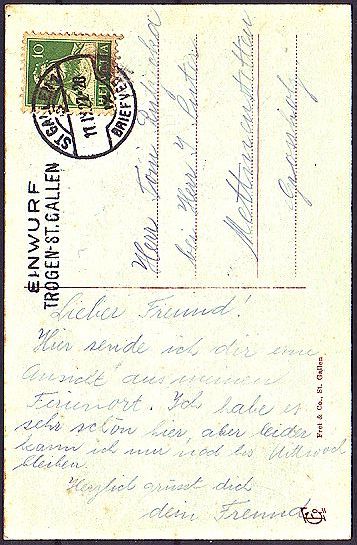 10
HELVETIA
ST. GALLEN
11.IX.22-20
BRIEFVERS
EINWURF
TROGEN-ST. GALLEN
Herr Toni
bei Herr J. Suter
Mettmenstetten
Lieber Freund!
Hier sende ich dir eine
Ansicht aus meinem
Ferienort. Ich habe es
sehr schön hier, aber leider
kann ich nur noch bis Mittwoch
bleiben.
Herzlich grüsst dich
dein Freund
Frei & Co., St. Gallen